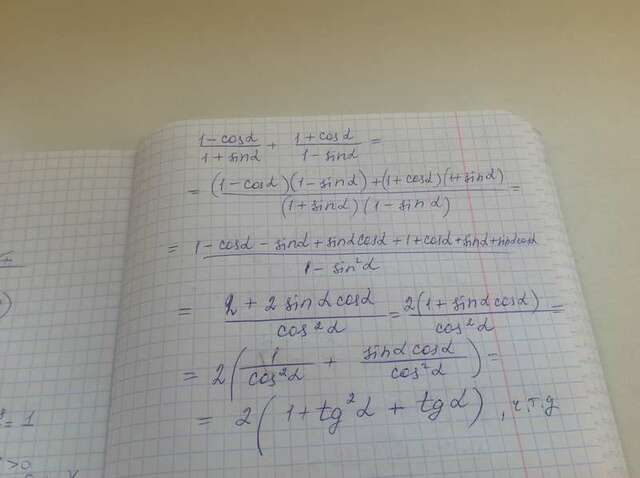 (1-cosα)/(1+sinα) + (1+cosα)/(1-sinα) =
= ((1-cosα)(1-sinα)+(1+cosα)(1+sinα))/((1+sinα)(1-sinα)) =
= (1-cosα-sinα+sinαcosα+1+cosα+sinα+sinαcosα)/(1-sin²α)
= (2+2sinαcosα)/(cos²α) = (2(1+sinαcosα))/(cos²α) =
= 2(1/(cos²α) + (sinαcosα)/(cos²α)) =
= 2(1+tg²α+tgα), ч.т.д
= 1
>0